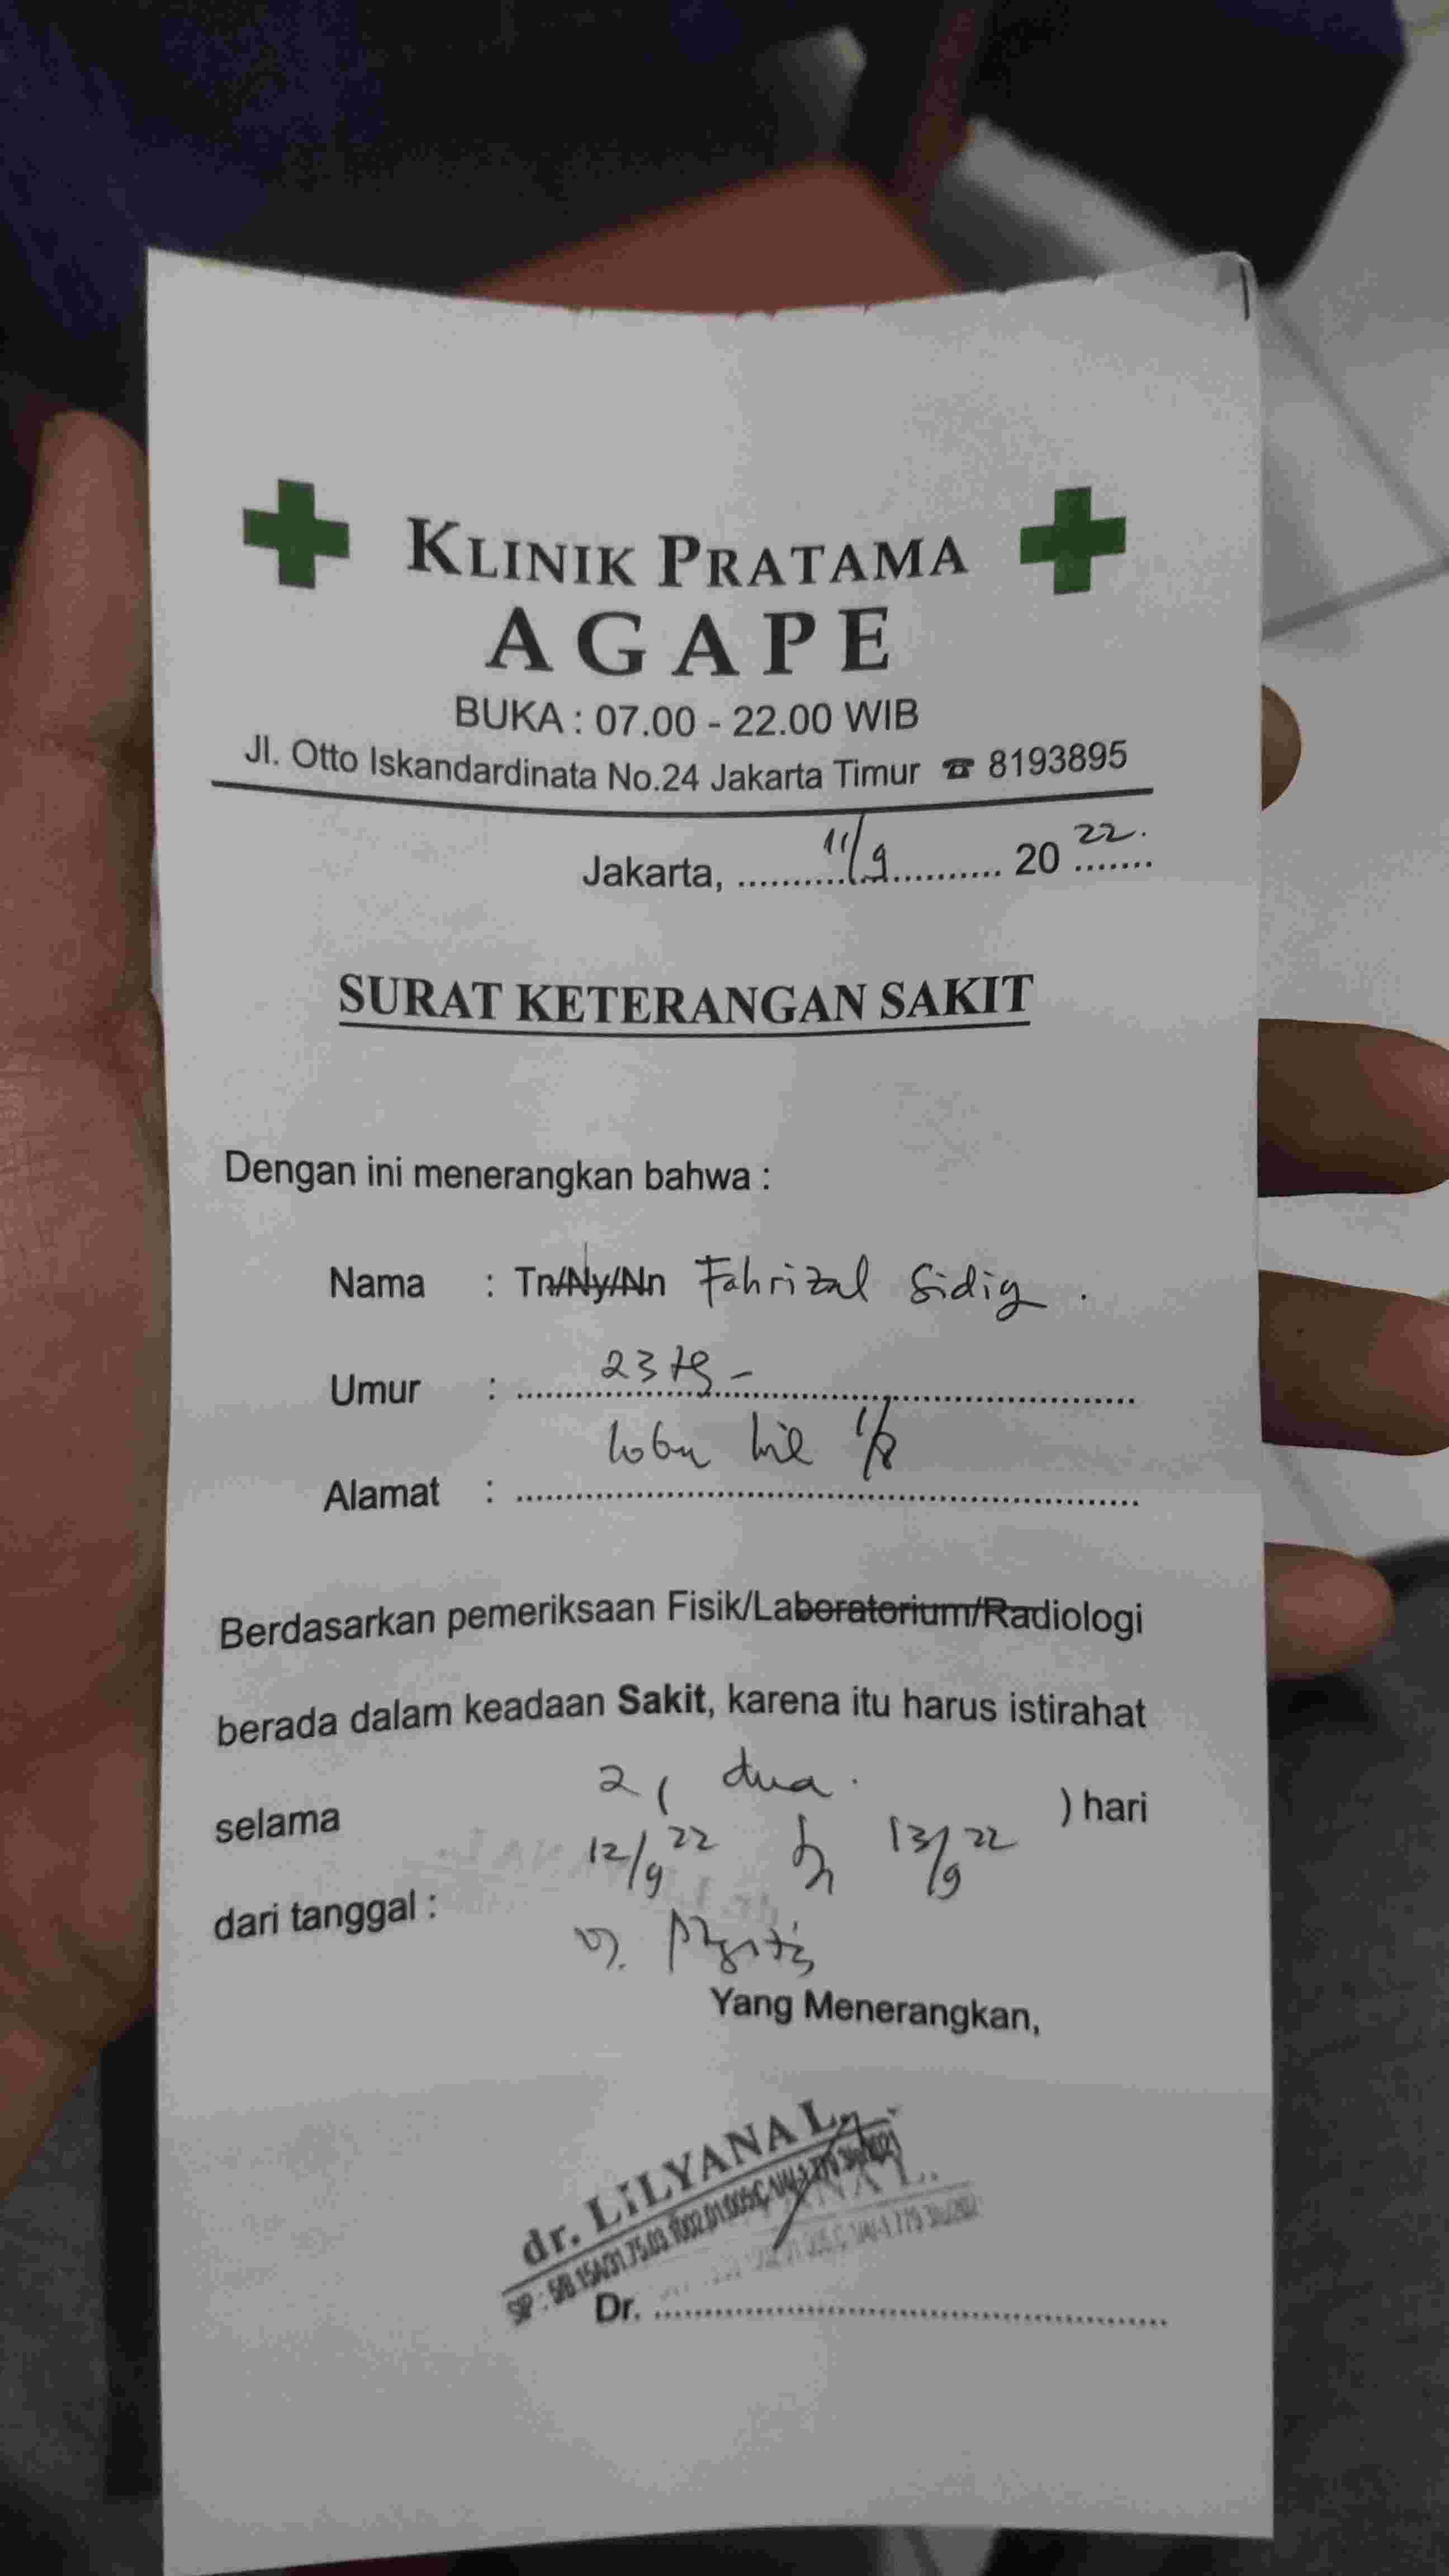 KLINIK PRATAMA
AGAPE
BUKA : 07.00 - 22.00 WIB
Jl. Otto Iskandardinata No.24 Jakarta Timur ☎ 8193895
Jakarta, 11/9 2022.
SURAT KETERANGAN SAKIT
Dengan ini menerangkan bahwa :
Nama : Tn/Ny/Nn Fahrizal Sidig.
Umur : 23
Alamat :
Berdasarkan pemeriksaan Fisik/Laboratorium/Radiologi
berada dalam keadaan Sakit, karena itu harus istirahat
selama 2 ( dua. ) hari
dari tanggal : 12/9 22 13/9 22
Yang Menerangkan,
dr. LILYANA L.
Dr.